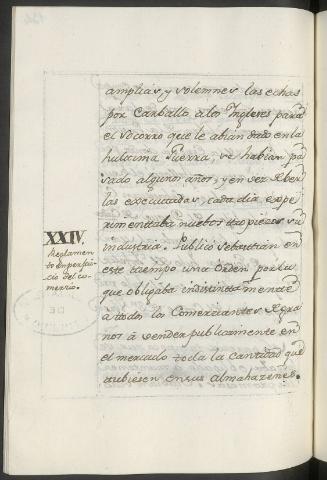 amplias, y solemnes las echas
por Carballo a los Ingleses para
el socorro que le abian dado en la
hultima Guerra, se habian pa
sado algunos años, y en vez de ber
las executadas, cada dia expe
rimentaba nuebos tropiezos su
industria. Publicó Sebastian en
este tiempo una Orden por la
que obligaba indistintamente
à todos los Comerciantes de gra
nos à vender publicamente en
el mercado toda la Cantidad que
tubiesen en sus almahazenes.
XXIV.
Reglamen
to en perjui
cio del co
mercio.